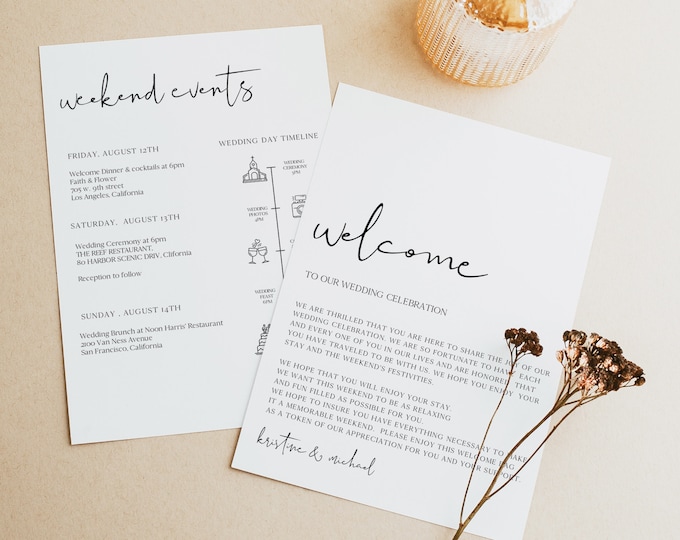 weekend events
FRIDAY, AUGUST 12TH
Welcome Dinner & cocktails at 6pm
Faith & Flower
705 w. 9th street
Los Angeles, California
SATURDAY, AUGUST 13TH
Wedding Ceremony at 6pm
THE REEF RESTAURANT,
80 HARBOR SCENIC DRIV, Clifornia
Reception to follow
SUNDAY , AUGUST 14TH
Wedding Brunch at Noon Harris' Restaurant
2100 Van Ness Avenue
San Francisco, California
WEDDING DAY TIMELINE
WEDDING
CEREMONY
WEDDING
PHOTOS
WEDDING
FEAST
welcome
TO OUR WEDDING CELEBRATION
WE ARE THRILLED THAT YOU ARE HERE TO SHARE THE JOY OF OUR
WEDDING CELEBRATION. WE ARE SO FORTUNATE TO HAVE EACH
AND EVERY ONE OF YOU IN OUR LIVES AND ARE HONORED THAT
YOU HAVE TRAVELED TO BE WITH US. WE HOPE YOU ENJOY YOUR
STAY AND THE WEEKEND'S FESTIVITIES.
WE HOPE THAT YOU WILL ENJOY YOUR STAY.
WE WANT THIS WEEKEND TO BE AS RELAXING
AND FUN FILLED AS POSSIBLE FOR YOU.
WE HOPE TO INSURE YOU HAVE EVERYTHING NECESSARY TO MAKE
IT A MEMORABLE WEEKEND. PLEASE ENJOY THIS WELCOME BAG
AS A TOKEN OF OUR APPRECIATION FOR YOU AND YOUR SUPPORT.
kristine & michael